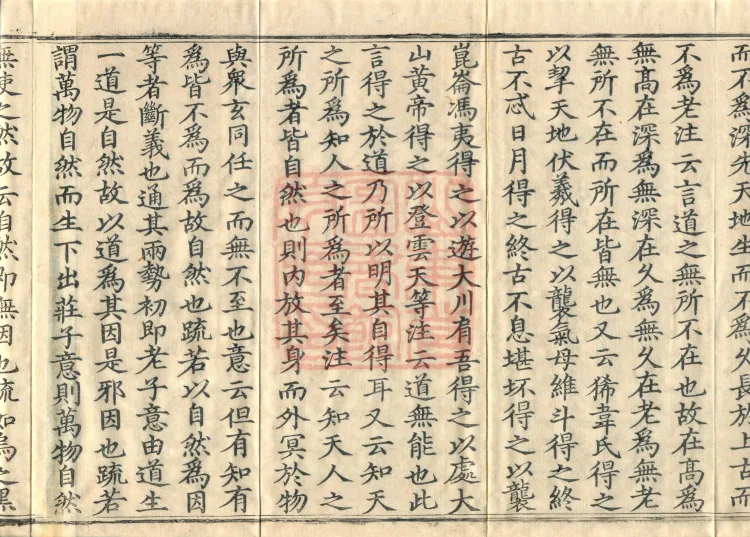 而不爲深先天地生而不爲久長於上古而
不爲老注云言道之無所不在也故在髙爲
無髙在深爲無深在久爲無久在老爲無老
無所不在而所在皆無也又云狶韋氏得之
以挈天地伏羲得之以襲氣母維斗得之終
古不忒日月得之終古不息堪坏得之以襲
崑崙馮夷得之以遊大川肩吾得之以處大
山黄帝得之以登雲天等注云道無能也此
言得之於道乃所以明其自得耳又云知天
之所爲知人之所爲者至矣注云知天人之
所爲者皆自然也則内放其身而外冥於物
與衆玄同任之而無不至也意云但有知有
爲皆不爲而爲故自然也䟽若以自然爲因
等者斷義也通其兩勢初即老子意由道生
一道是自然故以道爲其因是邪因也䟽若
謂萬物自然而生下出莊子意則萬物自然
無使之然故云自然即無因也䟽如烏之黑